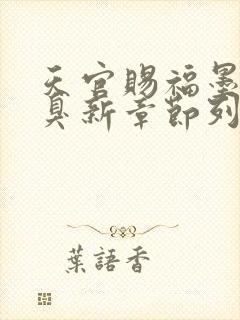 天官賜福墨
臭新章節列
葉語香